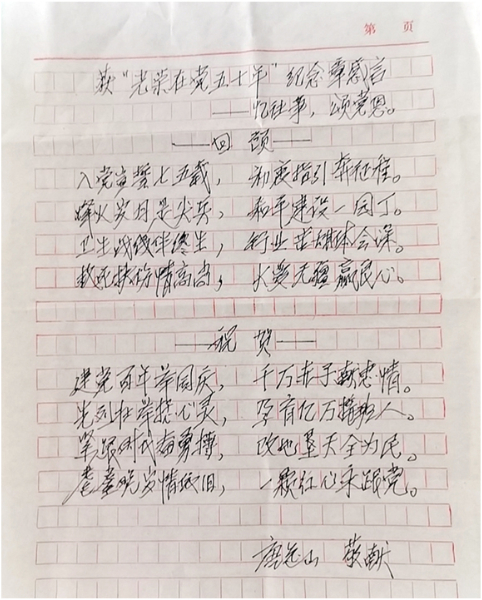 第 页
获“光荣在党五十年”纪念章感言
——忆往事，颂党恩。
——回 顾——
入党宣誓七五载， 制度指引奔征程。
烽火岁月是尖兵， 和平建设一园丁。
卫生战线伴终生， 行业苦甜体会深。
救死扶伤情高尚， 大爱无疆赢民心。
——祝 贺——
建党百年举国庆， 千万赤子献忠情。
先烈壮举撼心灵， 孕育亿万接班人。
紧跟时代奋勇搏， 改地垦天全为民。
耄耋晚岁情依旧， 一颗红心永跟党。
唐远山 敬献